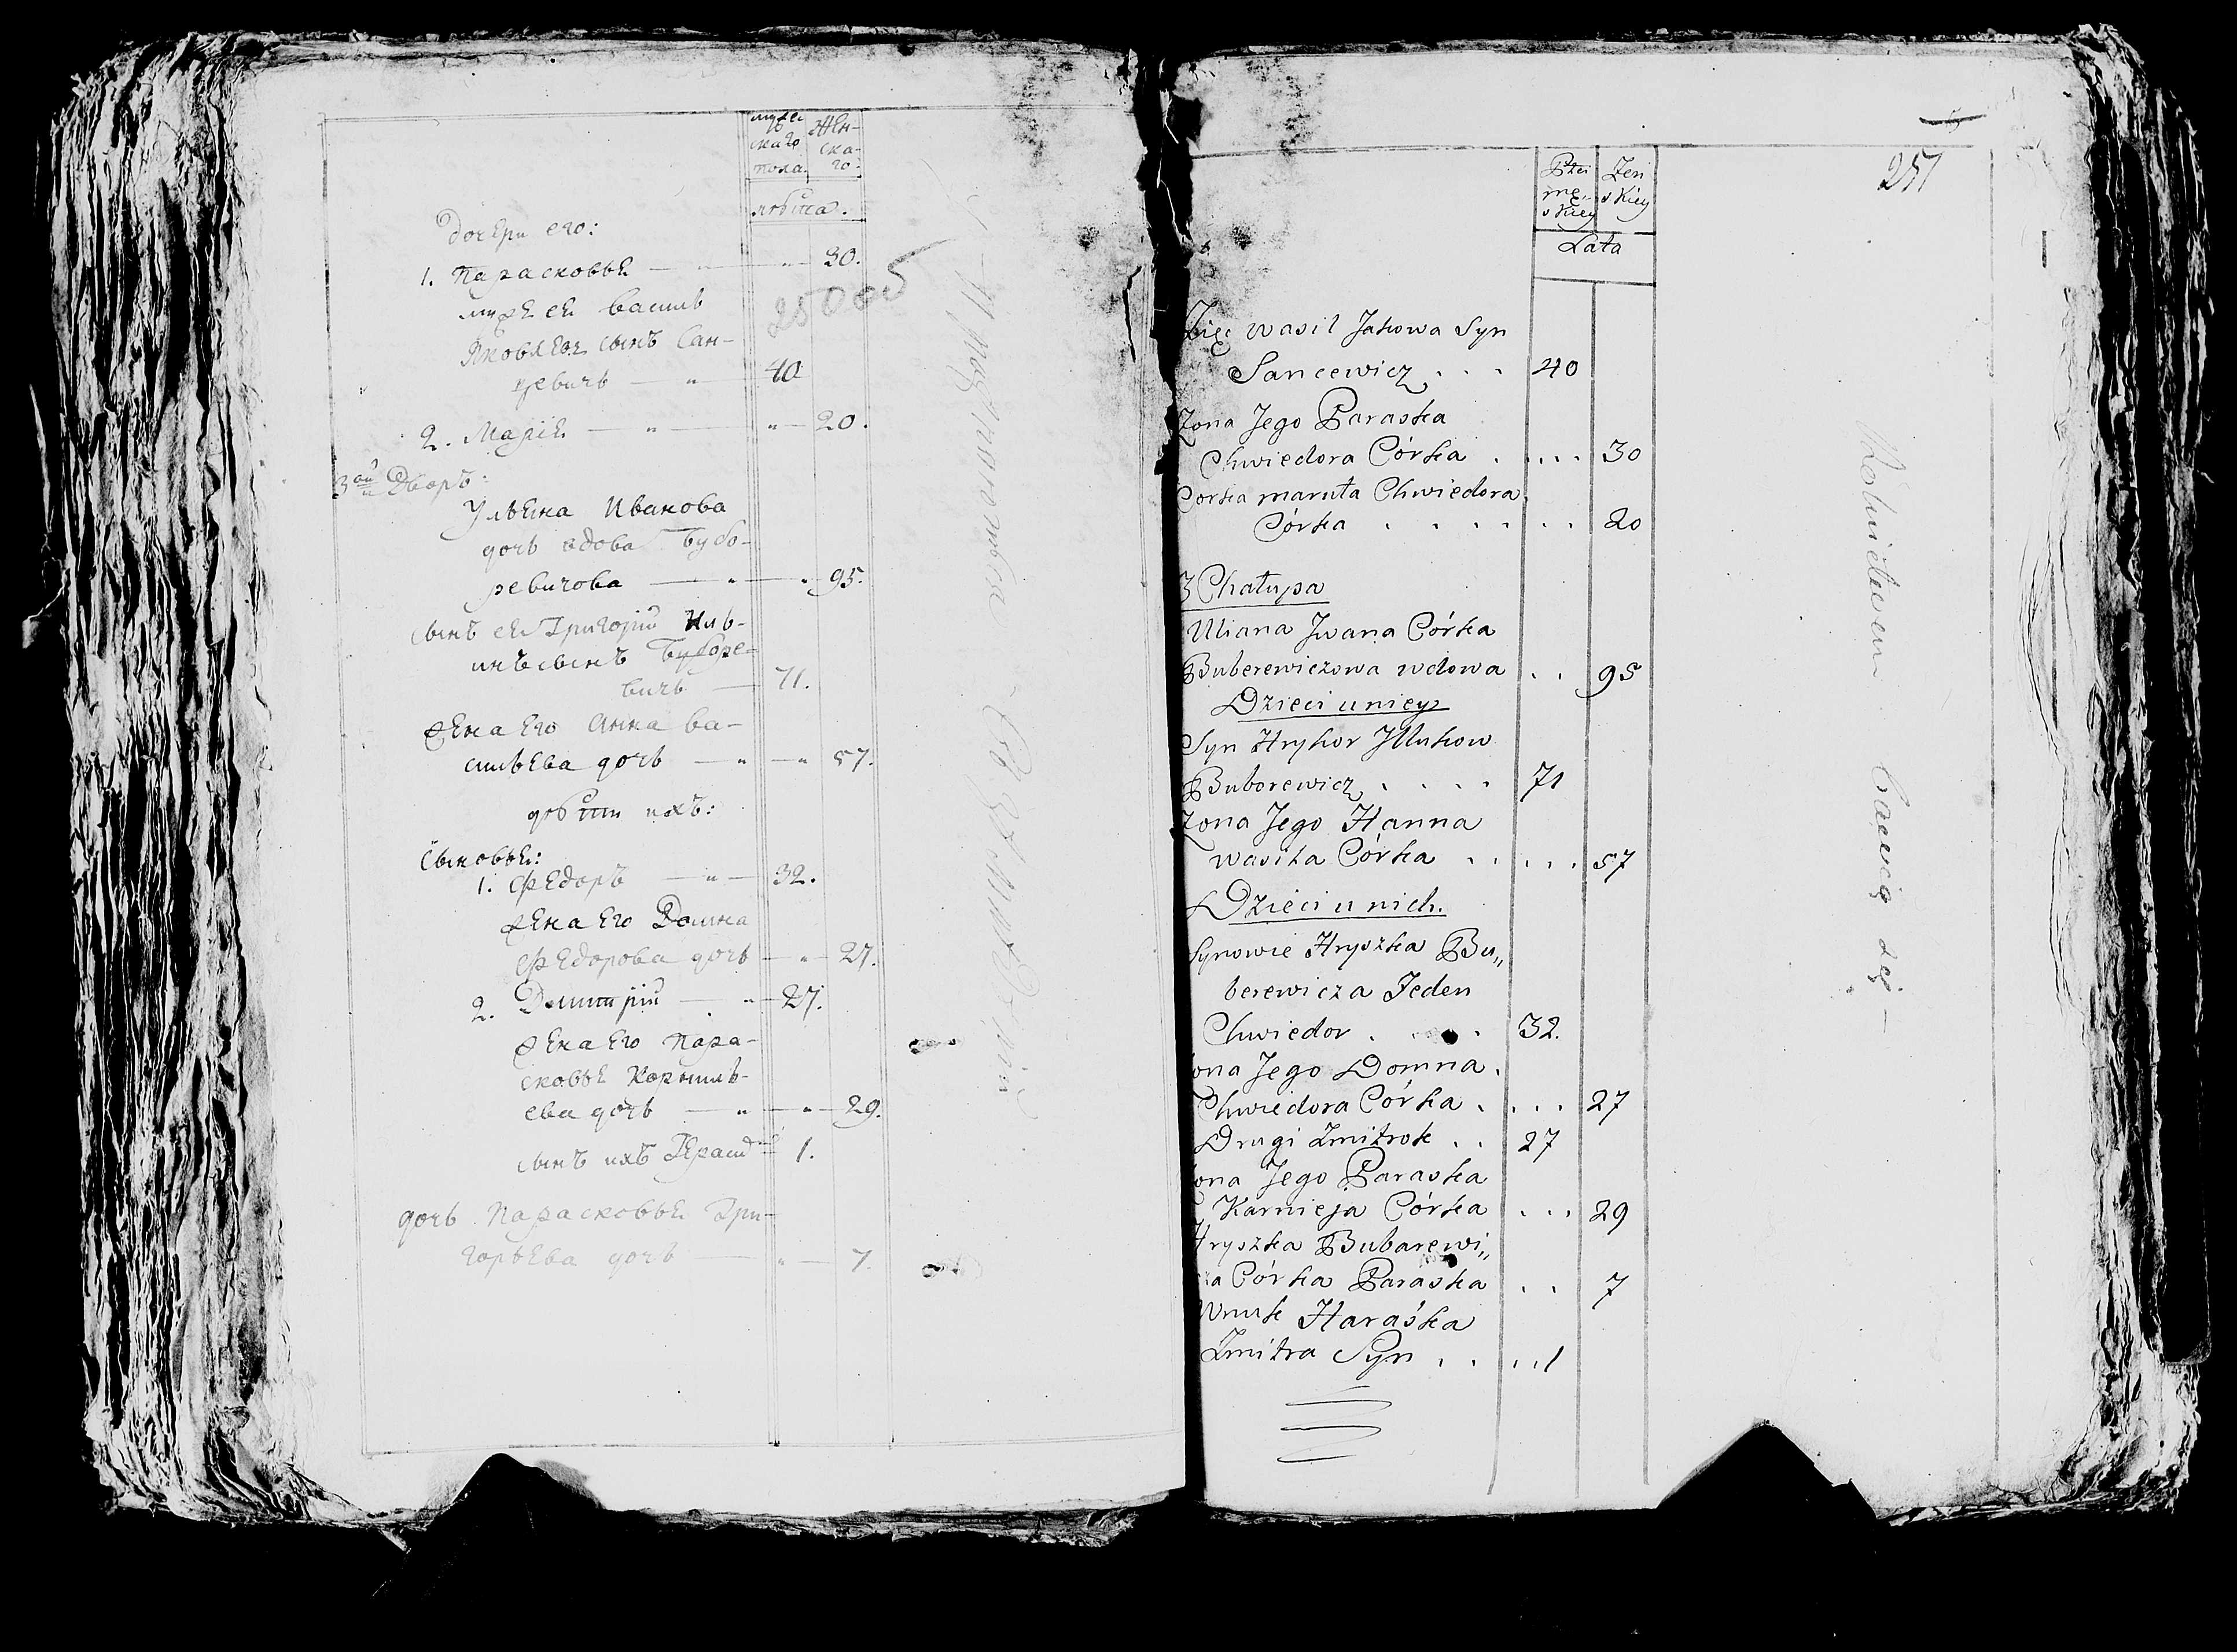 мужескаго пола
Женскаго
лѣта.
Дочери его:
1. Парасковья — " — " — 30.
мужъ ея Василь
Яковлевъ сынъ Сан-
цевичъ — " — 40
250 об
2. Марія — " — " — 20.
3ой Дворъ:
Ульяна Иванова
дочь вдова Бубо-
ревичова — " — " — 95.
сынъ ея Григорій Иль-
инъ сынъ Буборе-
вичъ — 71.
жена его Анна Ва-
сильева дочь — " — " 57.
дѣти ихъ:
Сыновья:
1. Федоръ — " — 32.
жена его Домна
Федорова дочь — " — 27.
2. Дмитрій — " — 27.
жена его Пара-
сковья Корниль-
ева дочь — " — " — 29.
сынъ ихъ Герасимъ 1.
дочь Парасковья Гри-
горьева дочь — " — 7.
251
Płci
mę-
skiey
Żeń
skiey
Lata
Zięć Wasil Jakowa Syn
Sancewicz . . . 40
Żona Jego Paraska
Chwiedora Córka . . . . . 30
Corka maruta Chwiedora
Córka . . . . . . 20
3 Chałupa
Uliana Jwana Córka
Buberewiczowa wdowa . . 95
Dzieci u niey
Syn Hryhor Jllukow
Buborewicz . . . . 71
Żona Jego Hanna
Wasila Córka . . . . . 57
Dzieci u nich.
Synowie Hryszka Bu„
berewicza Jeden
Chwiedor . . . 32.
Żona Jego Domna
Chwiedora Córka . . . . 27
Drugi Zmitrok . . 27
Żona Jego Paraska
Karnieja Córka . . . 29
Hryszka Bubarewi„
cza Córka Paraska . . 7
Wnuk Haraśka
Zmitra Syn . . . . 1